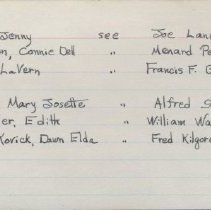 Jenny see Joe Lan
on, Connie Dell " Menard Pe
LaVern " Francis F. G
Mary Josette " Alfred S
er, Edith " William Wa
Kovick, Dawn Elda " Fred Kilgor